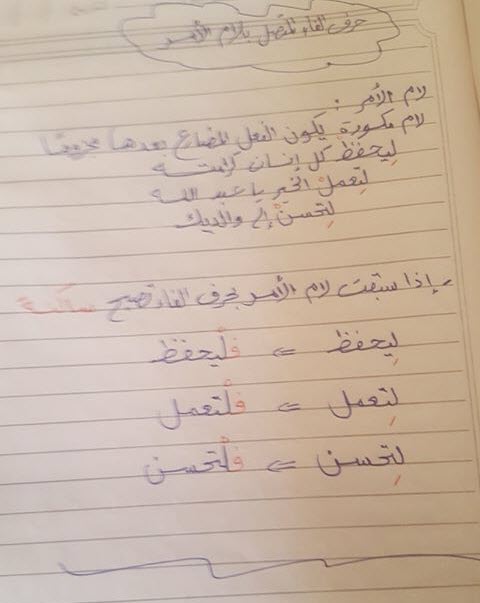 حرف الفاء المتصل بلام الأمر
لام الأمر :
لام مكسورة يكون الفعل المضارع بعدها مجزومًا
لِيحفظْ كل إنسان كرامته
لِتعملْ الخير يا عبد الله
لِتحسنْ إلى والديك
- إذا سبقت لام الأمر بحرف الفاء تصبح ساكنة
لِيحفظ => فلْيحفظ
لِتعمل => فلْتعمل
لِتحسن => فلْتحسن